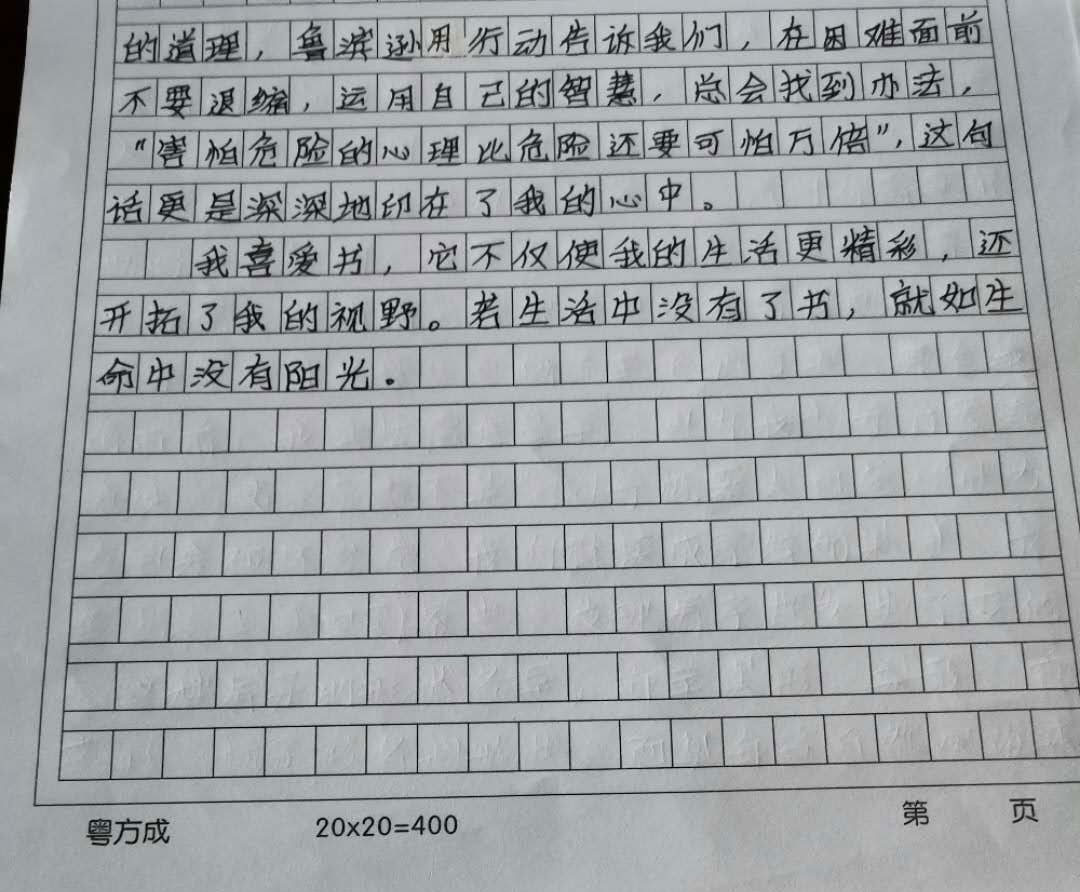 的道理，鲁滨逊用行动告诉我们，在困难面前
不要退缩，运用自己的智慧，总会找到办法，
“害怕危险的心理比危险还要可怕万倍”，这句
话更是深深地印在了我的心中。
我喜爱书，它不仅使我的生活更精彩，还
开拓了我的视野。若生活中没有了书，就如生
命中没有阳光。
粤方成 20x20=400 第 页